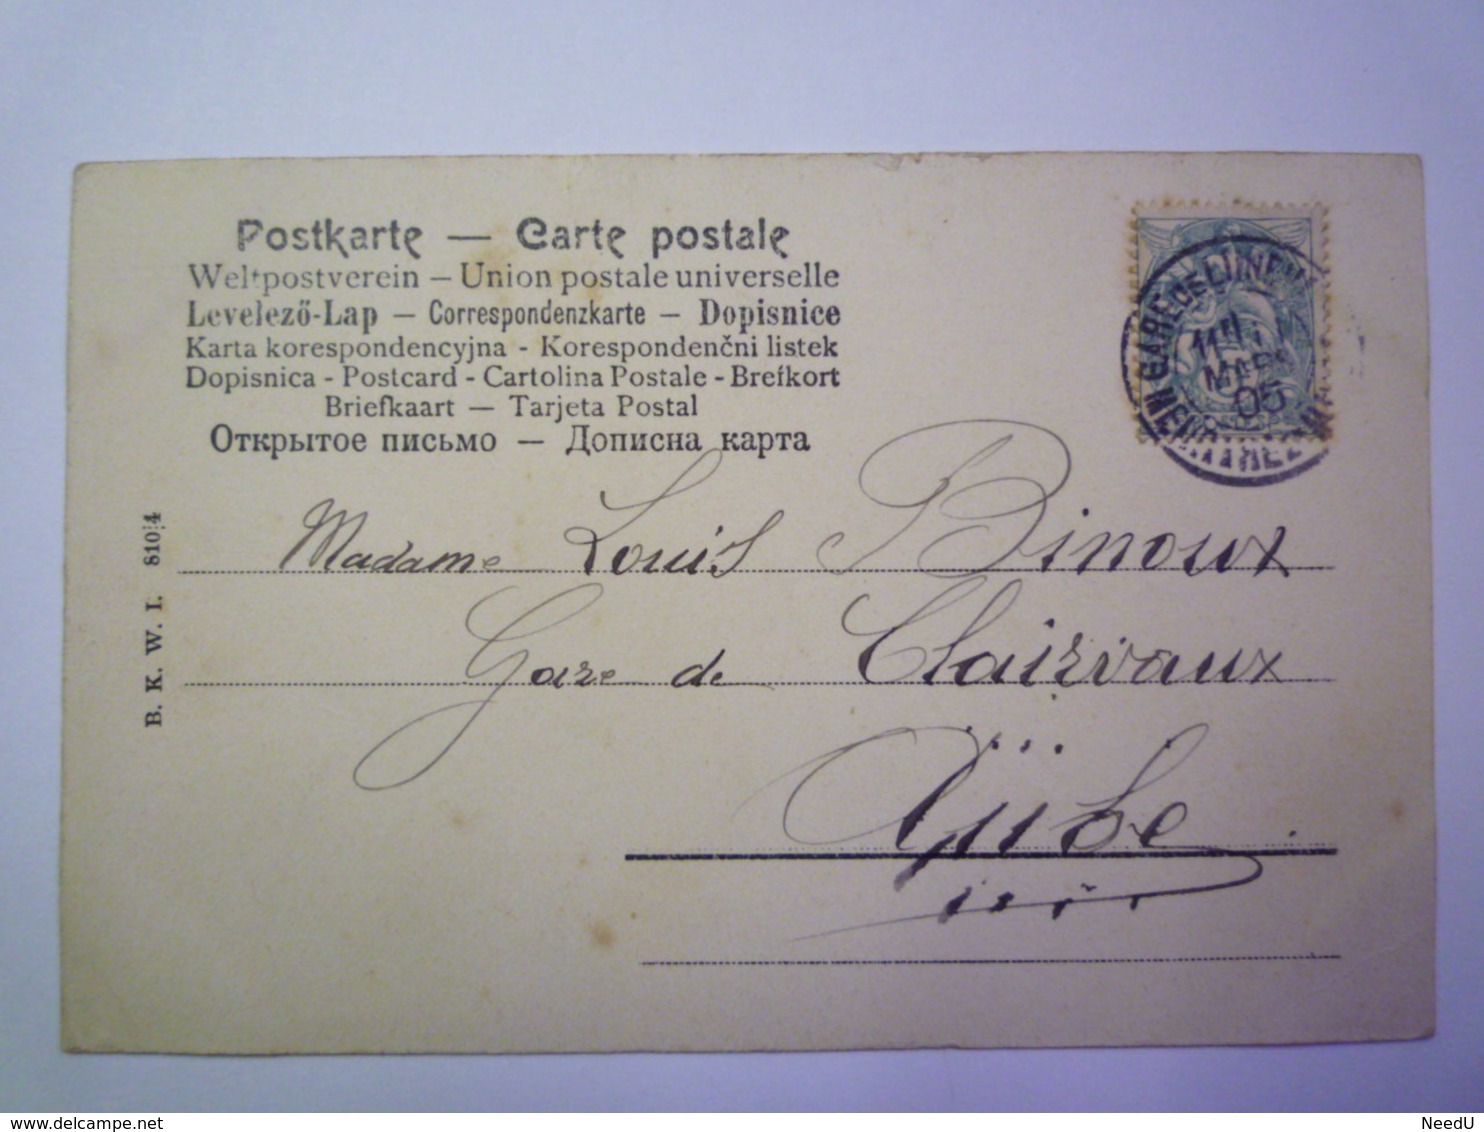 Postkarte — Carte postale
Weltpostverein – Union postale universelle
Levelező-Lap — Correspondenzkarte — Dopisnice
Karta korespondencyjna - Korespondenční listek
Dopisnica - Postcard - Cartolina Postale - Brefkort
Briefkaart — Tarjeta Postal
Открытое письмо — Дописна карта
GARE DE LUNE
MARS
05
B. K. W. I. 810/4
Madame Louis Binoux
Gare de Clairvaux
Aube
delcampe.net
NeedU